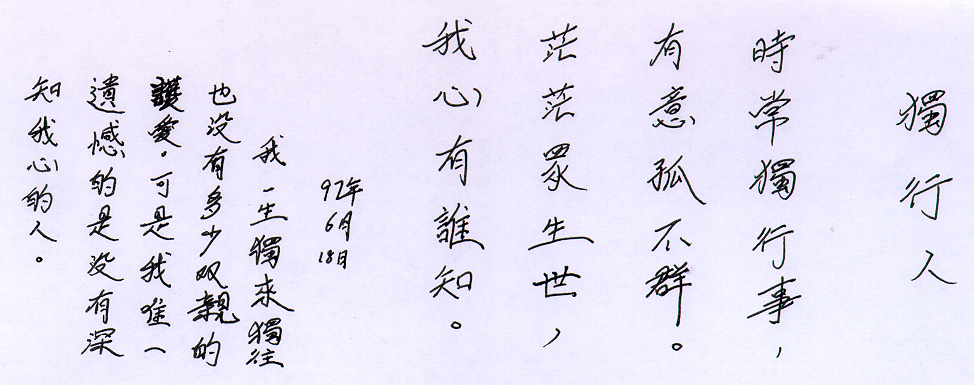 獨行人
時常獨行事，
有意孤不群。
茫茫眾生世，
我心有誰知。
92年
6月
18日
我一生獨來獨往
也没有多少双親的
護愛。可是我唯一
遺憾的是没有深
知我心的人。